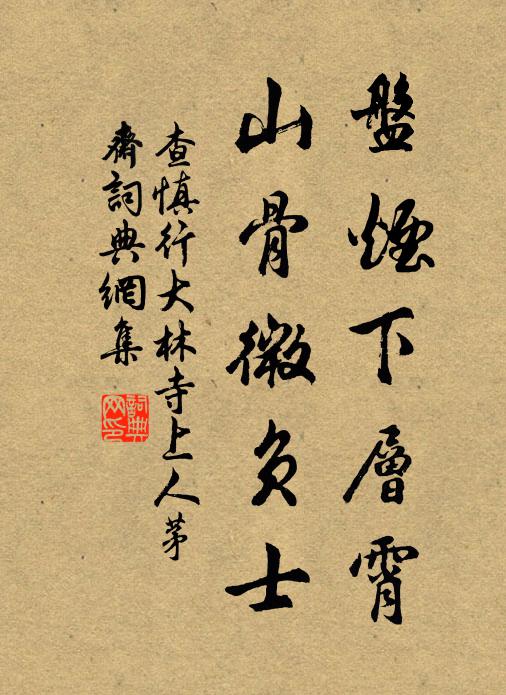 盤煙下層霄
山骨微負士
查慎行大林寺上人茅
齋詞典網集
詞典
网印